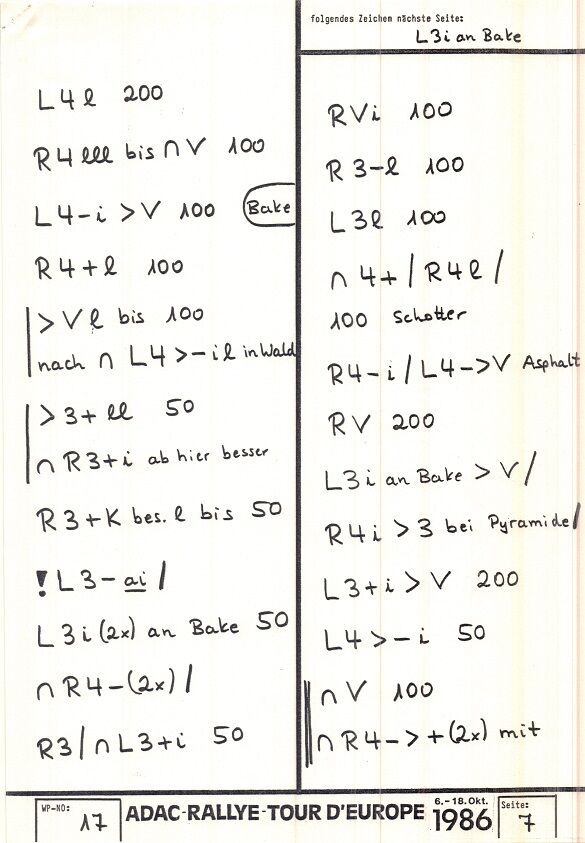 folgendes Zeichen nächste Seite:
L3i an Bake
L4l 200
R4lll bis ∩V 100
L4-i >V 100 Bake
R4+l 100
>Vl bis 100
nach ∩ L4>-il in Wald
>3+ll 50
∩R3+i ab hier besser
R3+K bes. l bis 50
! L3-ai/
L3i(2x) an Bake 50
∩R4-(2x)/
R3/∩L3+i 50
RVi 100
R3-l 100
L3l 100
∩4+/R4l/
100 Schotter
R4-i/L4->V Asphalt
RV 200
L3i an Bake >V/
R4i >3 bei Pyramide/
L3+i>V 200
L4>-i 50
∩V 100
∩R4->+(2x) mit
WP-NO: 17
ADAC-RALLYE-TOUR D'EUROPE
6.-18.Okt.
1986
Seite: 7